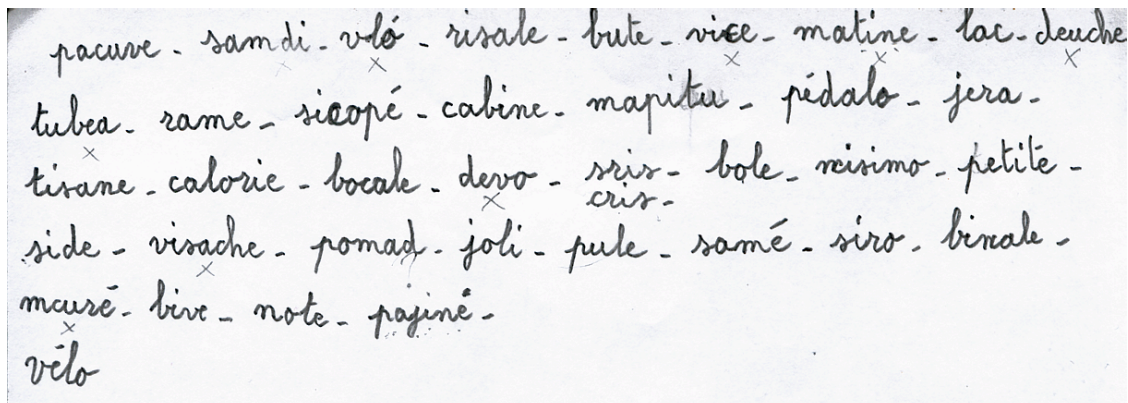 pacuve - samdi - vló - risale - bute - vice - matine - lac - deuche
tubea - rame - sicopé - cabine - mapitu - pédalo - jera -
tisane - calorie - bocale - devo - sris - bole - misimo - petite -
cris -
side - visache - pomad - joli - pule - samé - siro - binale -
mcuré - bive - note - pajiné -
vélo